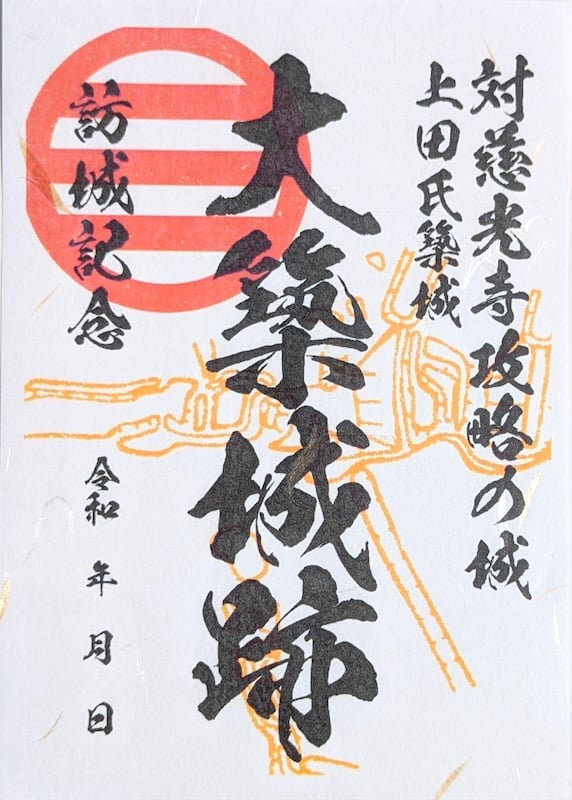 対慈光寺攻略の城
上田氏築城
大築城跡
訪城記念
令和 年 月 日